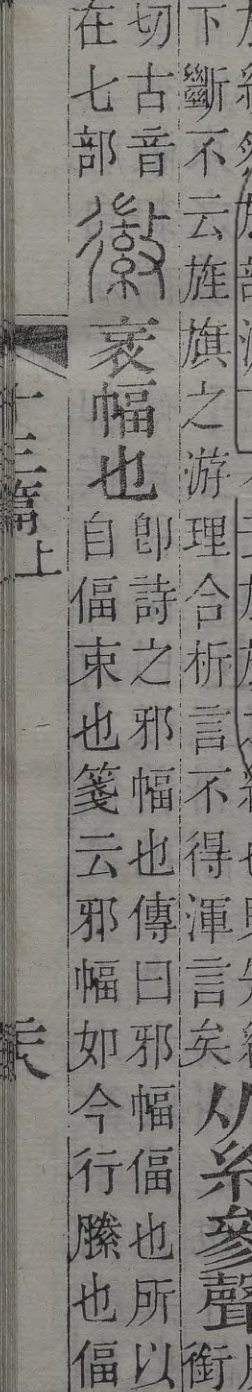 下斷不云旌旗之游理合析言不得渾言矣
从糸參聲
銜
切古音
在七部
徽衺幅也
卽詩之邪幅也傳曰邪幅偪也所以
自偪束也箋云邪幅如今行縢也偪
十三篇上